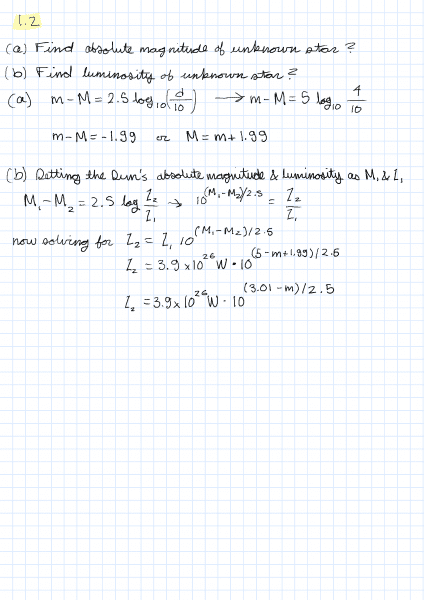 1.2
(a) Find absolute magnitude of unknown star?
(b) Find luminosity of unknown star?
(a) m-M = 2.5 log₁₀(d/10) → m-M = 5 log₁₀ 4/10
m-M = -1.99 or M = m+1.99
(b) Letting the Sun's absolute magnitude & luminosity as M₁ & L₁
M₁-M₂ = 2.5 log L₂/L₁ → 10^(M₁-M₂)/2.5 = L₂/L₁
now solving for L₂ = L₁ 10^(M₁-M₂)/2.5
L₂ = 3.9 x 10²⁶ W · 10^(5-m+1.99)/2.5
L₂ = 3.9 x 10²⁶ W · 10^(3.01-m)/2.5